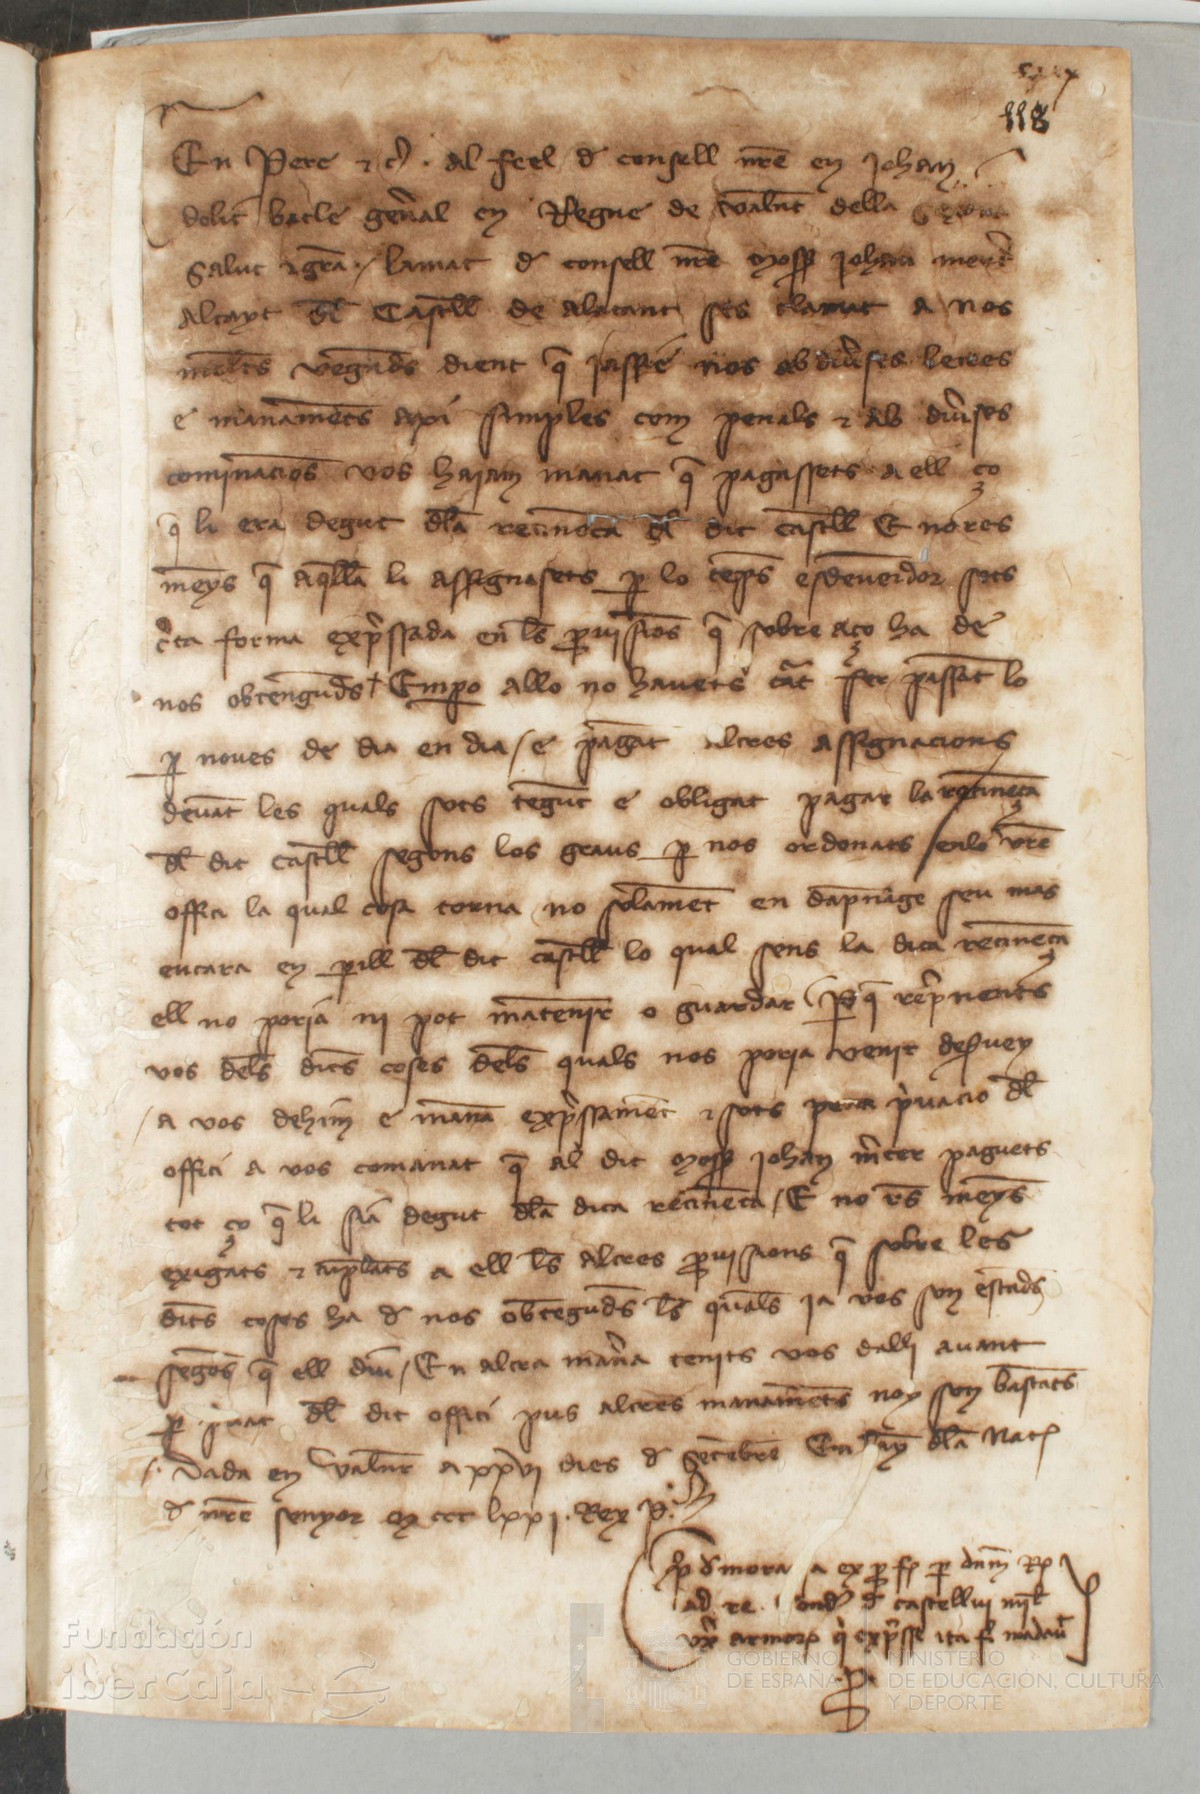 118
En Pere &c. al feel d consell nre en Johan
dolit batle general en Regne de Valent della
Salut & gra. / lamat d consell nre mossen Johan mercer
Alcayt dl Castell de Alacant ses clamat a nos
moltes vegades dient q jassie nos ab diverses letres
e manaments axi simples com penals & ab diverses
cominacions vos hajam manat q pagassets a ell ço
q li era degut dla retinença dl dit castell Et no res
meyns q aqlla li assignasets p lo temps esdevenidor sots
certa forma expressada en les provisions q sobre aço ha de
nos obtengudes Empero allo no havets curat fer passat lo
p noves de dia en dia / e pagat altres assignacions
devant les quals sots tengut e obligat pagar la retinença
dl dit castell segons los graus p nos ordonats / en lo vre
offici la qual cosa torna no solament en dapnatge seu mas
encara en perill dl dit castell lo qual sens la dita retinença
ell no poria ni pot mantenir o guardar / Per q reprenents
vos deles dites coses deles quals nos poria venir desservey
a vos dehim e manam expressament & sots pena privacio dl
offici a vos comanat q al dit mossen Johan mercer paguets
tot ço q li sia degut dla dita retinença / E no res meyns
exigats & complats a ell les altres provisions q sobre les
dites coses ha d nos obtegudes les quals ja vos son estades
segons q ell diu / En altra manera tenits vos dalli avant
per privat dl dit offici pus altres manaments noy son bastants
Dada en Valent a xxvi dies d setembre En lany dla Nat
d nre senyor M ccc lxxi. Rex P.
P d mora ex p f p dnm R
ad re. d castellui mil
armor q expresse ita fi mandavit
P.
Fundación
iberCaja
GOBIERNO
DE ESPAÑA
MINISTERIO
DE EDUCACIÓN, CULTURA
Y DEPORTE